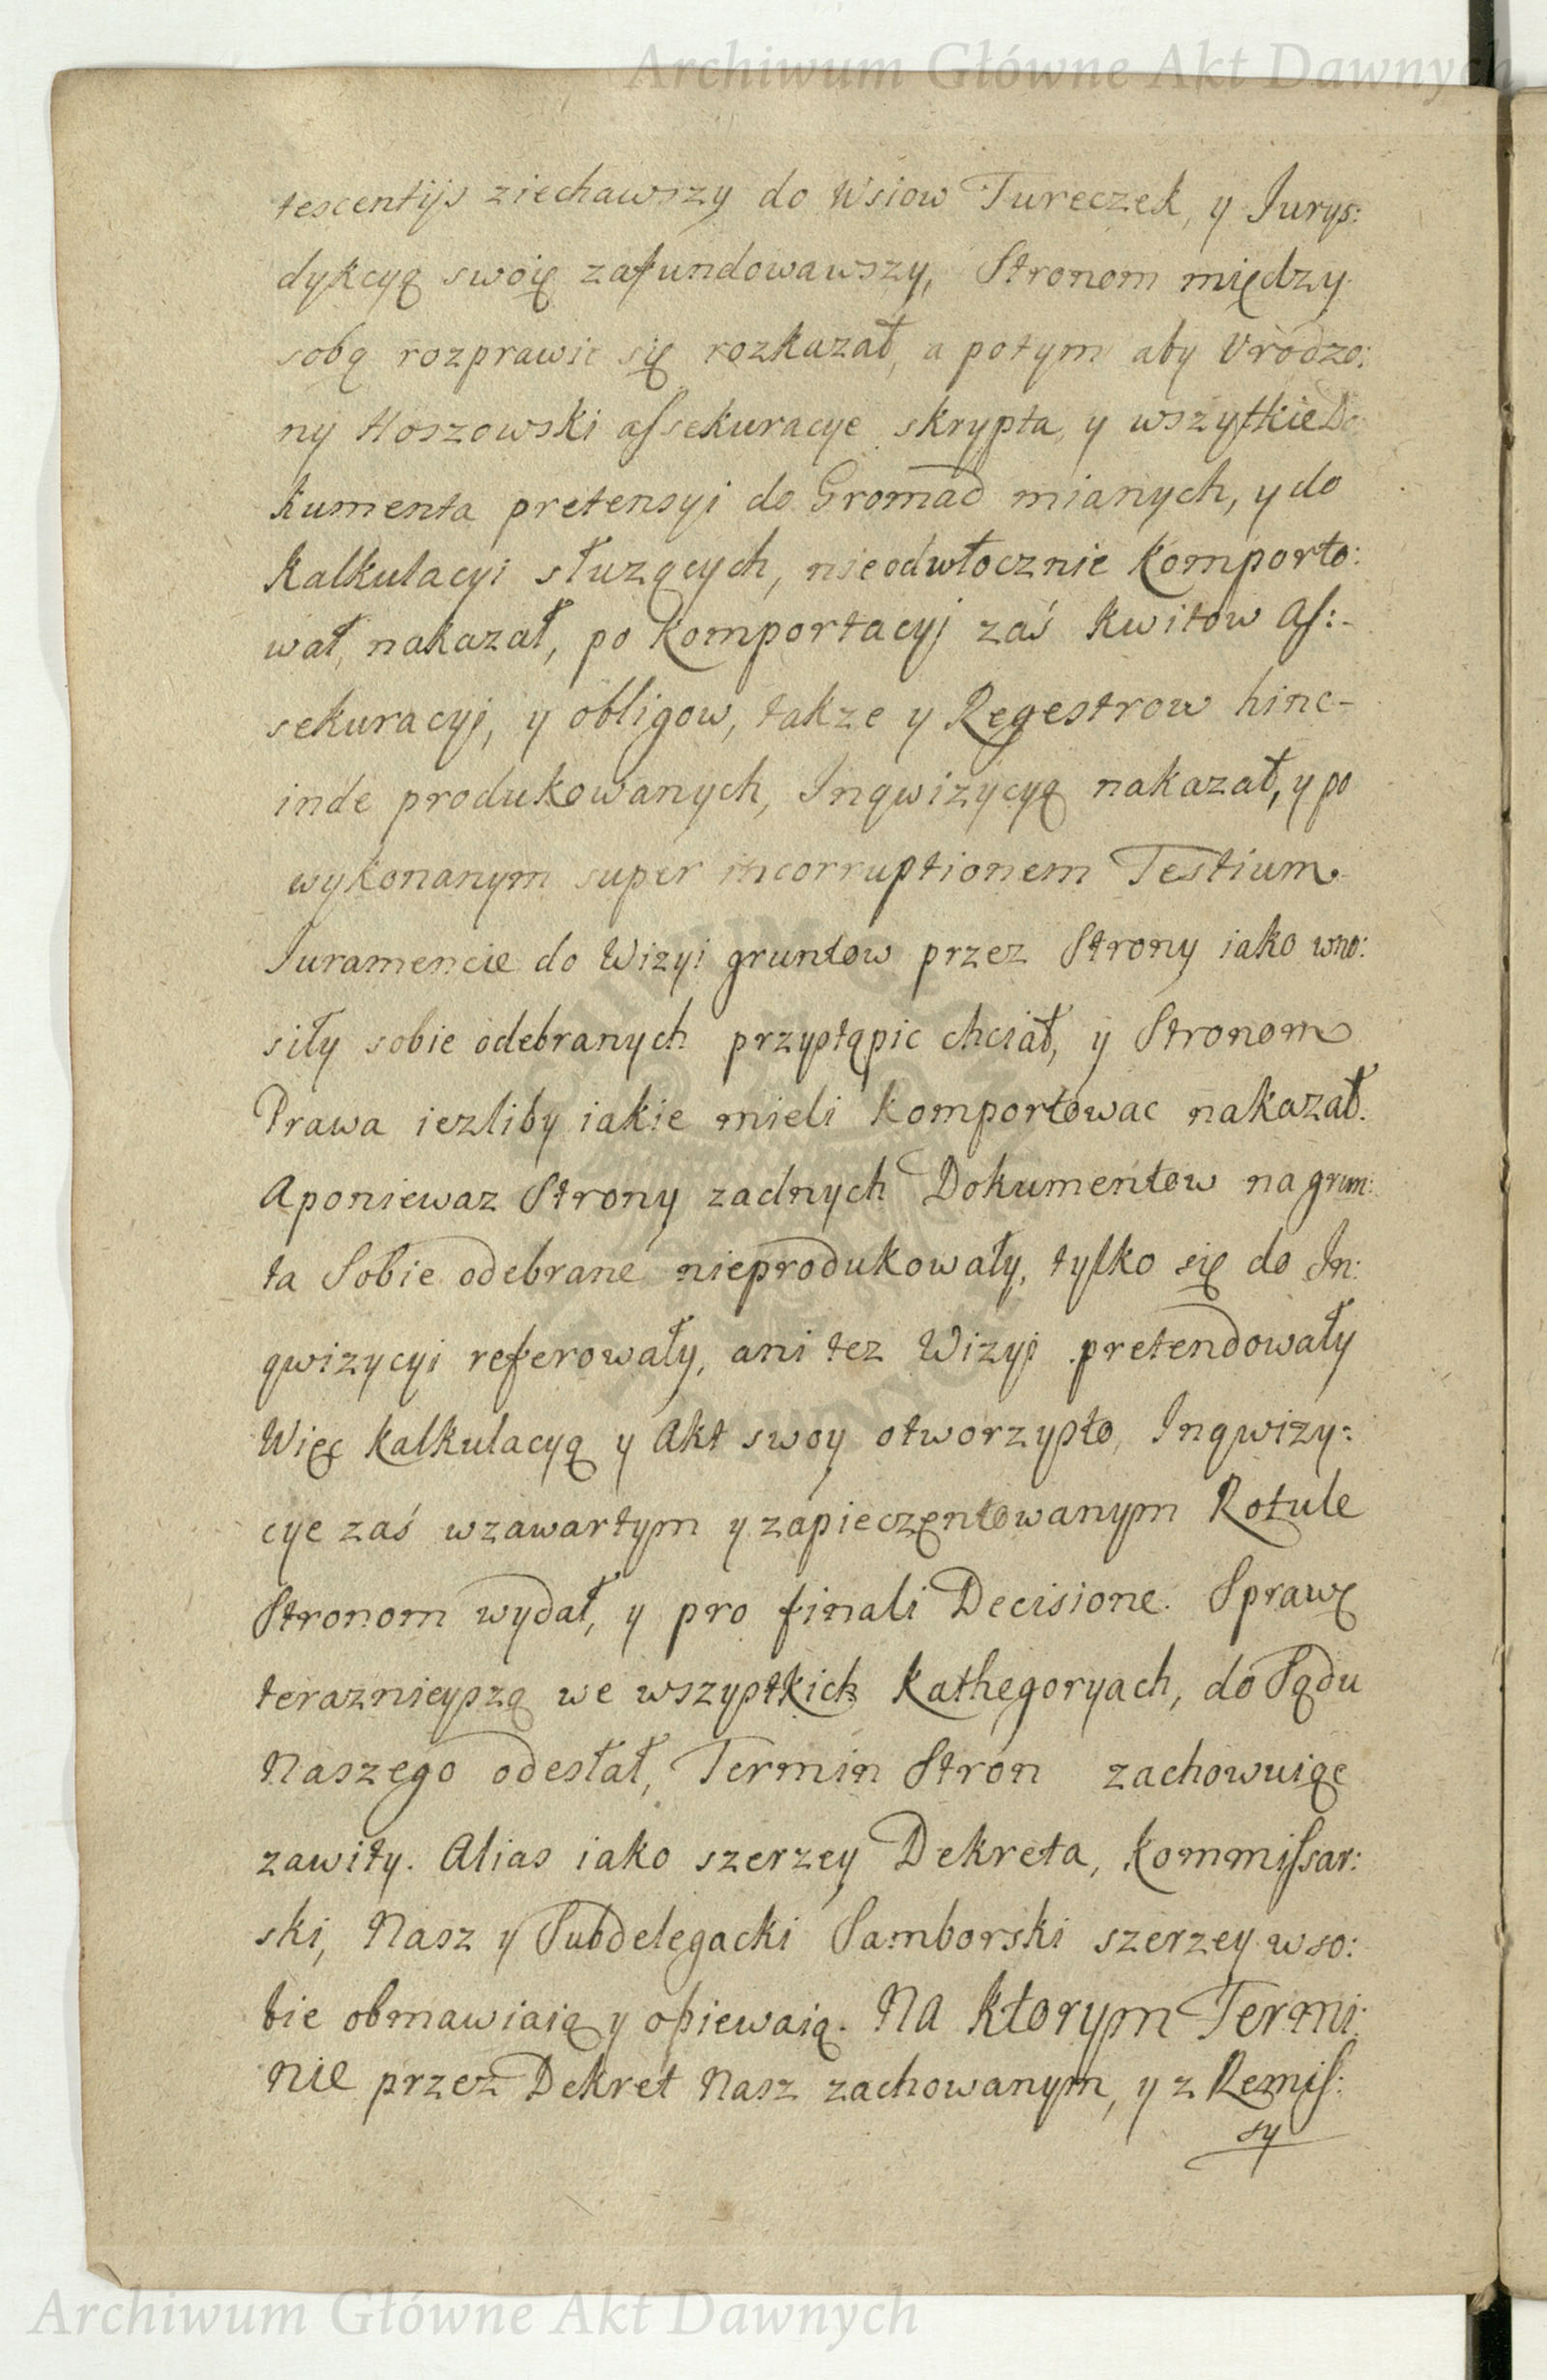 Archiwum Główne Akt Dawnych
tescentijs ziechawszy do Wsiow Tureczek, y Jurys:
dykcyą swoię zafundowawszy, Stronom między
sobą rozprawic się rozkazał, a potym aby Vrodzo:
ny Hoszowski aſsekuracye skrypta, y wszyſtkie Do
kumenta pretensyi do Gromad mianych, y do
Kalkulacyi słuzących, nieodwłocznie komporto:
wał, nakazał, po komportacyj zaś kwitow Aſ:
sekuracyj, y obligow, takze y Regestrow hinc-
inde produkowanych, Inqwizycyą nakazał, y po
wykonanym super incorruptionem Testium
Juramencie do Wizyi gruntow przez Strony iako wno:
siły sobie odebranych przystąpic chciał, y Stronom
Prawa iezliby iakie mieli komportowac nakazał.
Aponiewaz Strony zadnych Dokumentow na grun:
ta Sobie odebrane nieprodukowały, tylko się do In:
qwizycyi referowały, ani tez Wizyi pretendowały
Więc kalkulacyą y Akt swoy otworzysto, Inqwizy:
cye zaś wzawartym y zapieczentowanym Rotule
Stronom wydał, y pro finali Decisione. Sprawę
teraznieyszą we wszystkich kathegoryach, do Sądu
Naszego odesłał, Termin Stron zachowuiąc
zawity. Alias iako szerzey Dekreta, kommiſsar:
ski, Nasz y Subdelegacki Samborski szerzey wso:
bie obmawiaią y opiewaią. Na ktorym Termi:
nie przez Dekret Nasz zachowanym, y z Remiſ:
sy
Archiwum Główne Akt Dawnych